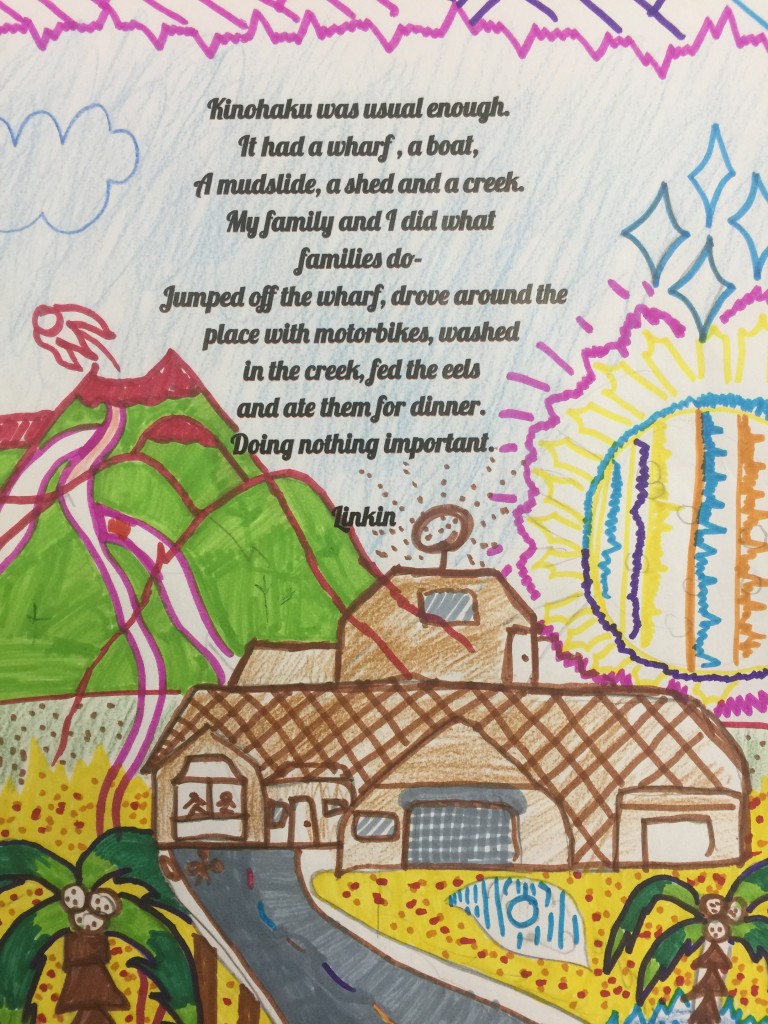 Kinohaku was usual enough.
It had a wharf , a boat,
A mudslide, a shed and a creek.
My family and I did what
families do-
Jumped off the wharf, drove around the
place with motorbikes, washed
in the creek, fed the eels
and ate them for dinner.
Doing nothing important.
Linkin